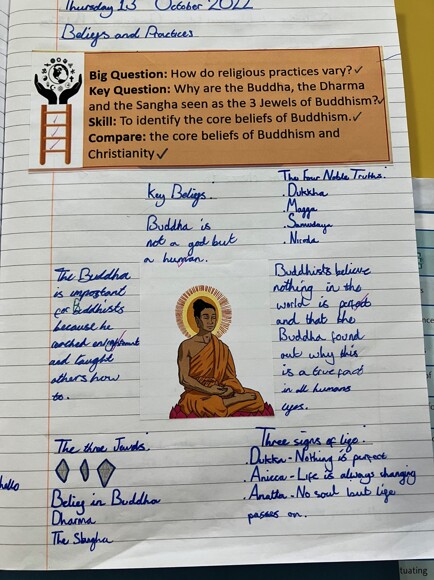 Thursday 13th October 2022
Beliefs and Practices
Big Question: How do religious practices vary?
Key Question: Why are the Buddha, the Dharma
and the Sangha seen as the 3 Jewels of Buddhism?
Skill: To identify the core beliefs of Buddhism.
Compare: the core beliefs of Buddhism and
Christianity
The Four Noble Truths.
. Dukkha
. Magga
. Samudaya
. Niroda
Key Beliefs.
Buddha is
not a god but
a human.
The Buddha
is important
for Buddhists
because he
reached enlightenment
and taught
others how
to.
Buddhists believe
nothing in the
world is perfect
and that the
Buddha found
out why this
is a true fact
in all humans
lives.
The three Jewels.
Belief in Buddha
Dharma
The Sangha
Three signs of life.
. Dukka - Nothing is perfect
. Anicca - Life is always changing
. Anatta - No soul but life
passes on.
hello
tuating